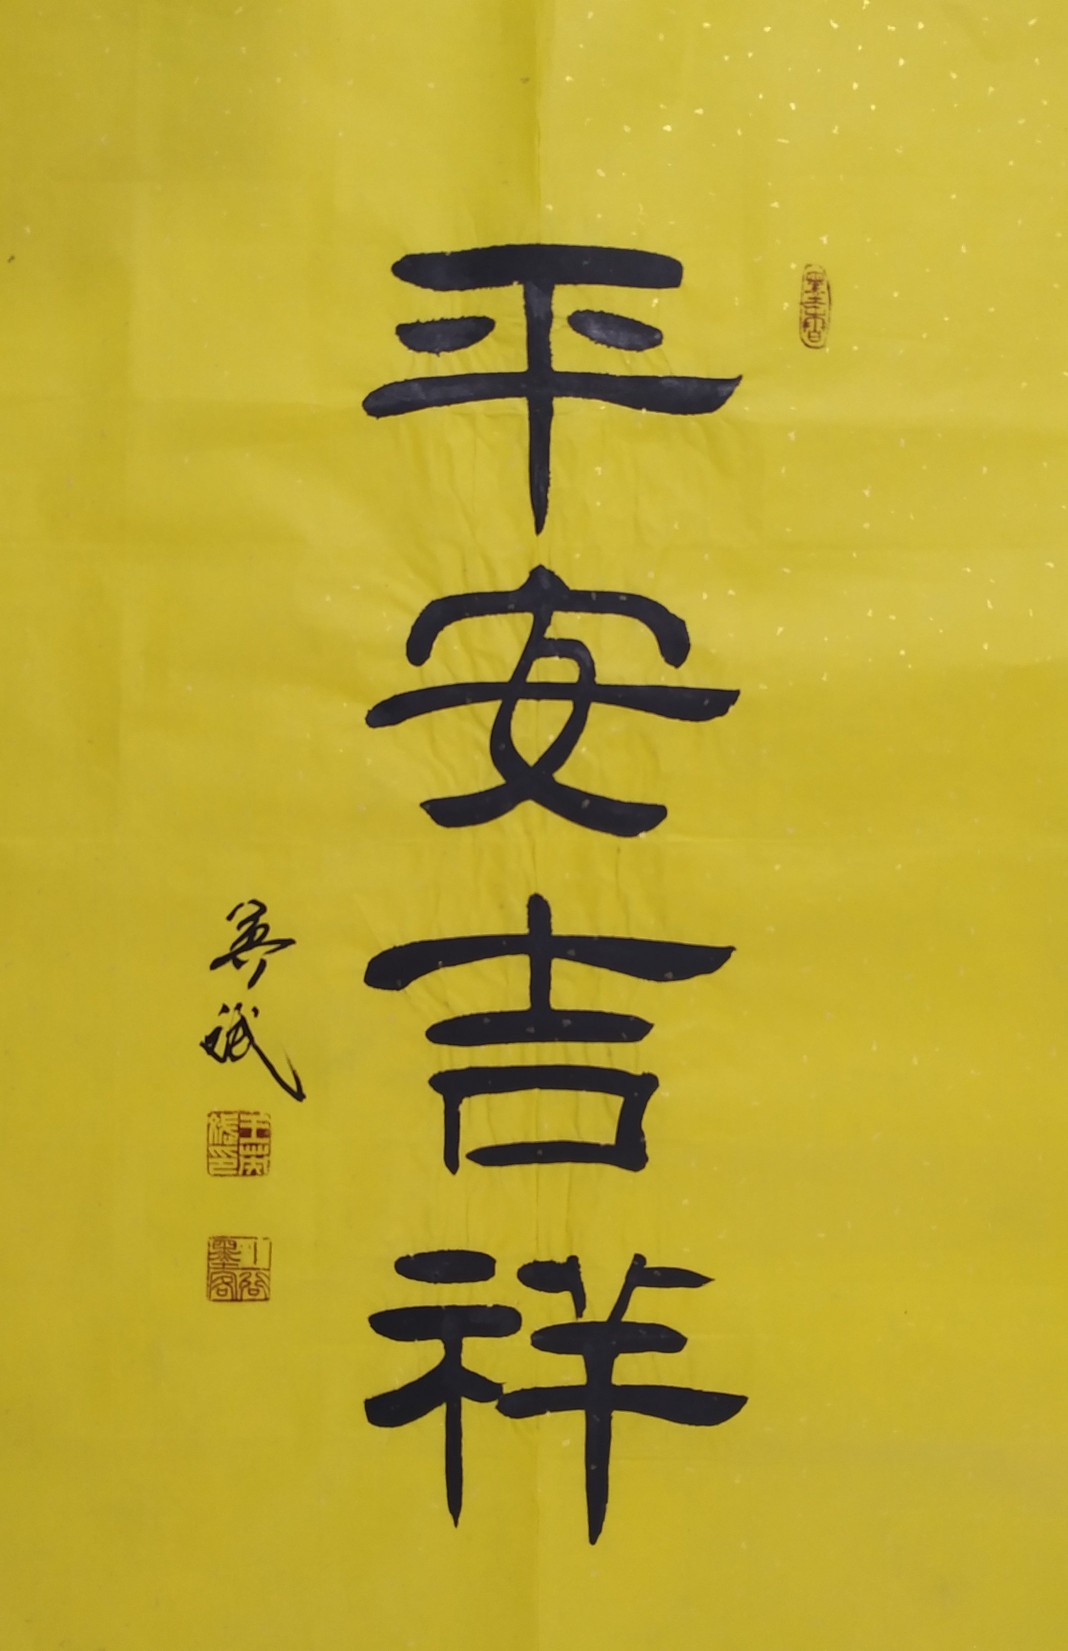 平安吉祥
英斌